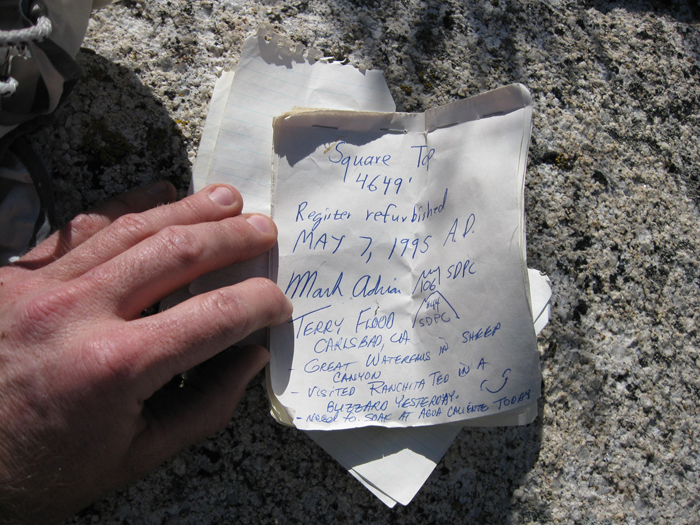 Square Top
4649'
Register refurbished
MAY 7, 1995 A.D.
Mark Adrian / my 106 SDPC
TERRY FLOOD / my 44 SDPC
CARLSBAD, CA
- GREAT WATERFALLS IN SHEEP
CANYON
- VISITED RANCHITA TED IN A
BLIZZARD YESTERDAY.
- NEED TO SOAK AT AGUA CALIENTE TODAY